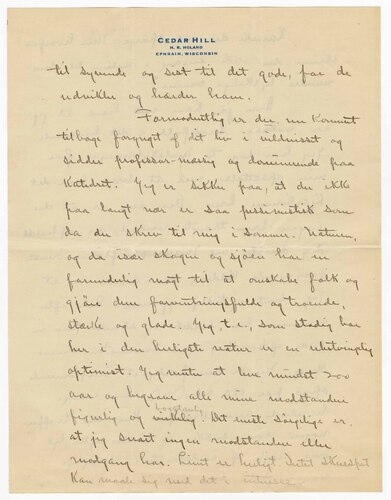 CEDAR HILL
H. R. HOLAND
EPHRAIM, WISCONSIN
til syvende og sist til det gode, for de
udvikler og hærder ham.
Formodentlig er du nu kommet
tilbage forynget af det liv i vildnisset og
sidder professor-mæssig og dominerende paa
Katedret. Jeg er sikker paa, at du ikke
paa langt nær er saa pessimistisk som
da du skrev til mig i sommer. Naturen,
og da især skogen og sjøen har en
forunderlig magt til at omskabe folk og
gjøre dem forventningsfulde og troende,
stærke og glade. Jeg, t.e., som stadig bor
her i den herligste natur er en ubetvingelig
optimist. Jeg venter at leve mindst 200
aar og begrave alle mine modstandere
figurlig og virkelig. Det eneste sørgelige er,
at jeg snart ingen modstandere eller
modgang har. Livet er herligt. Intet skuespil
kan maale sig med det i interesse.